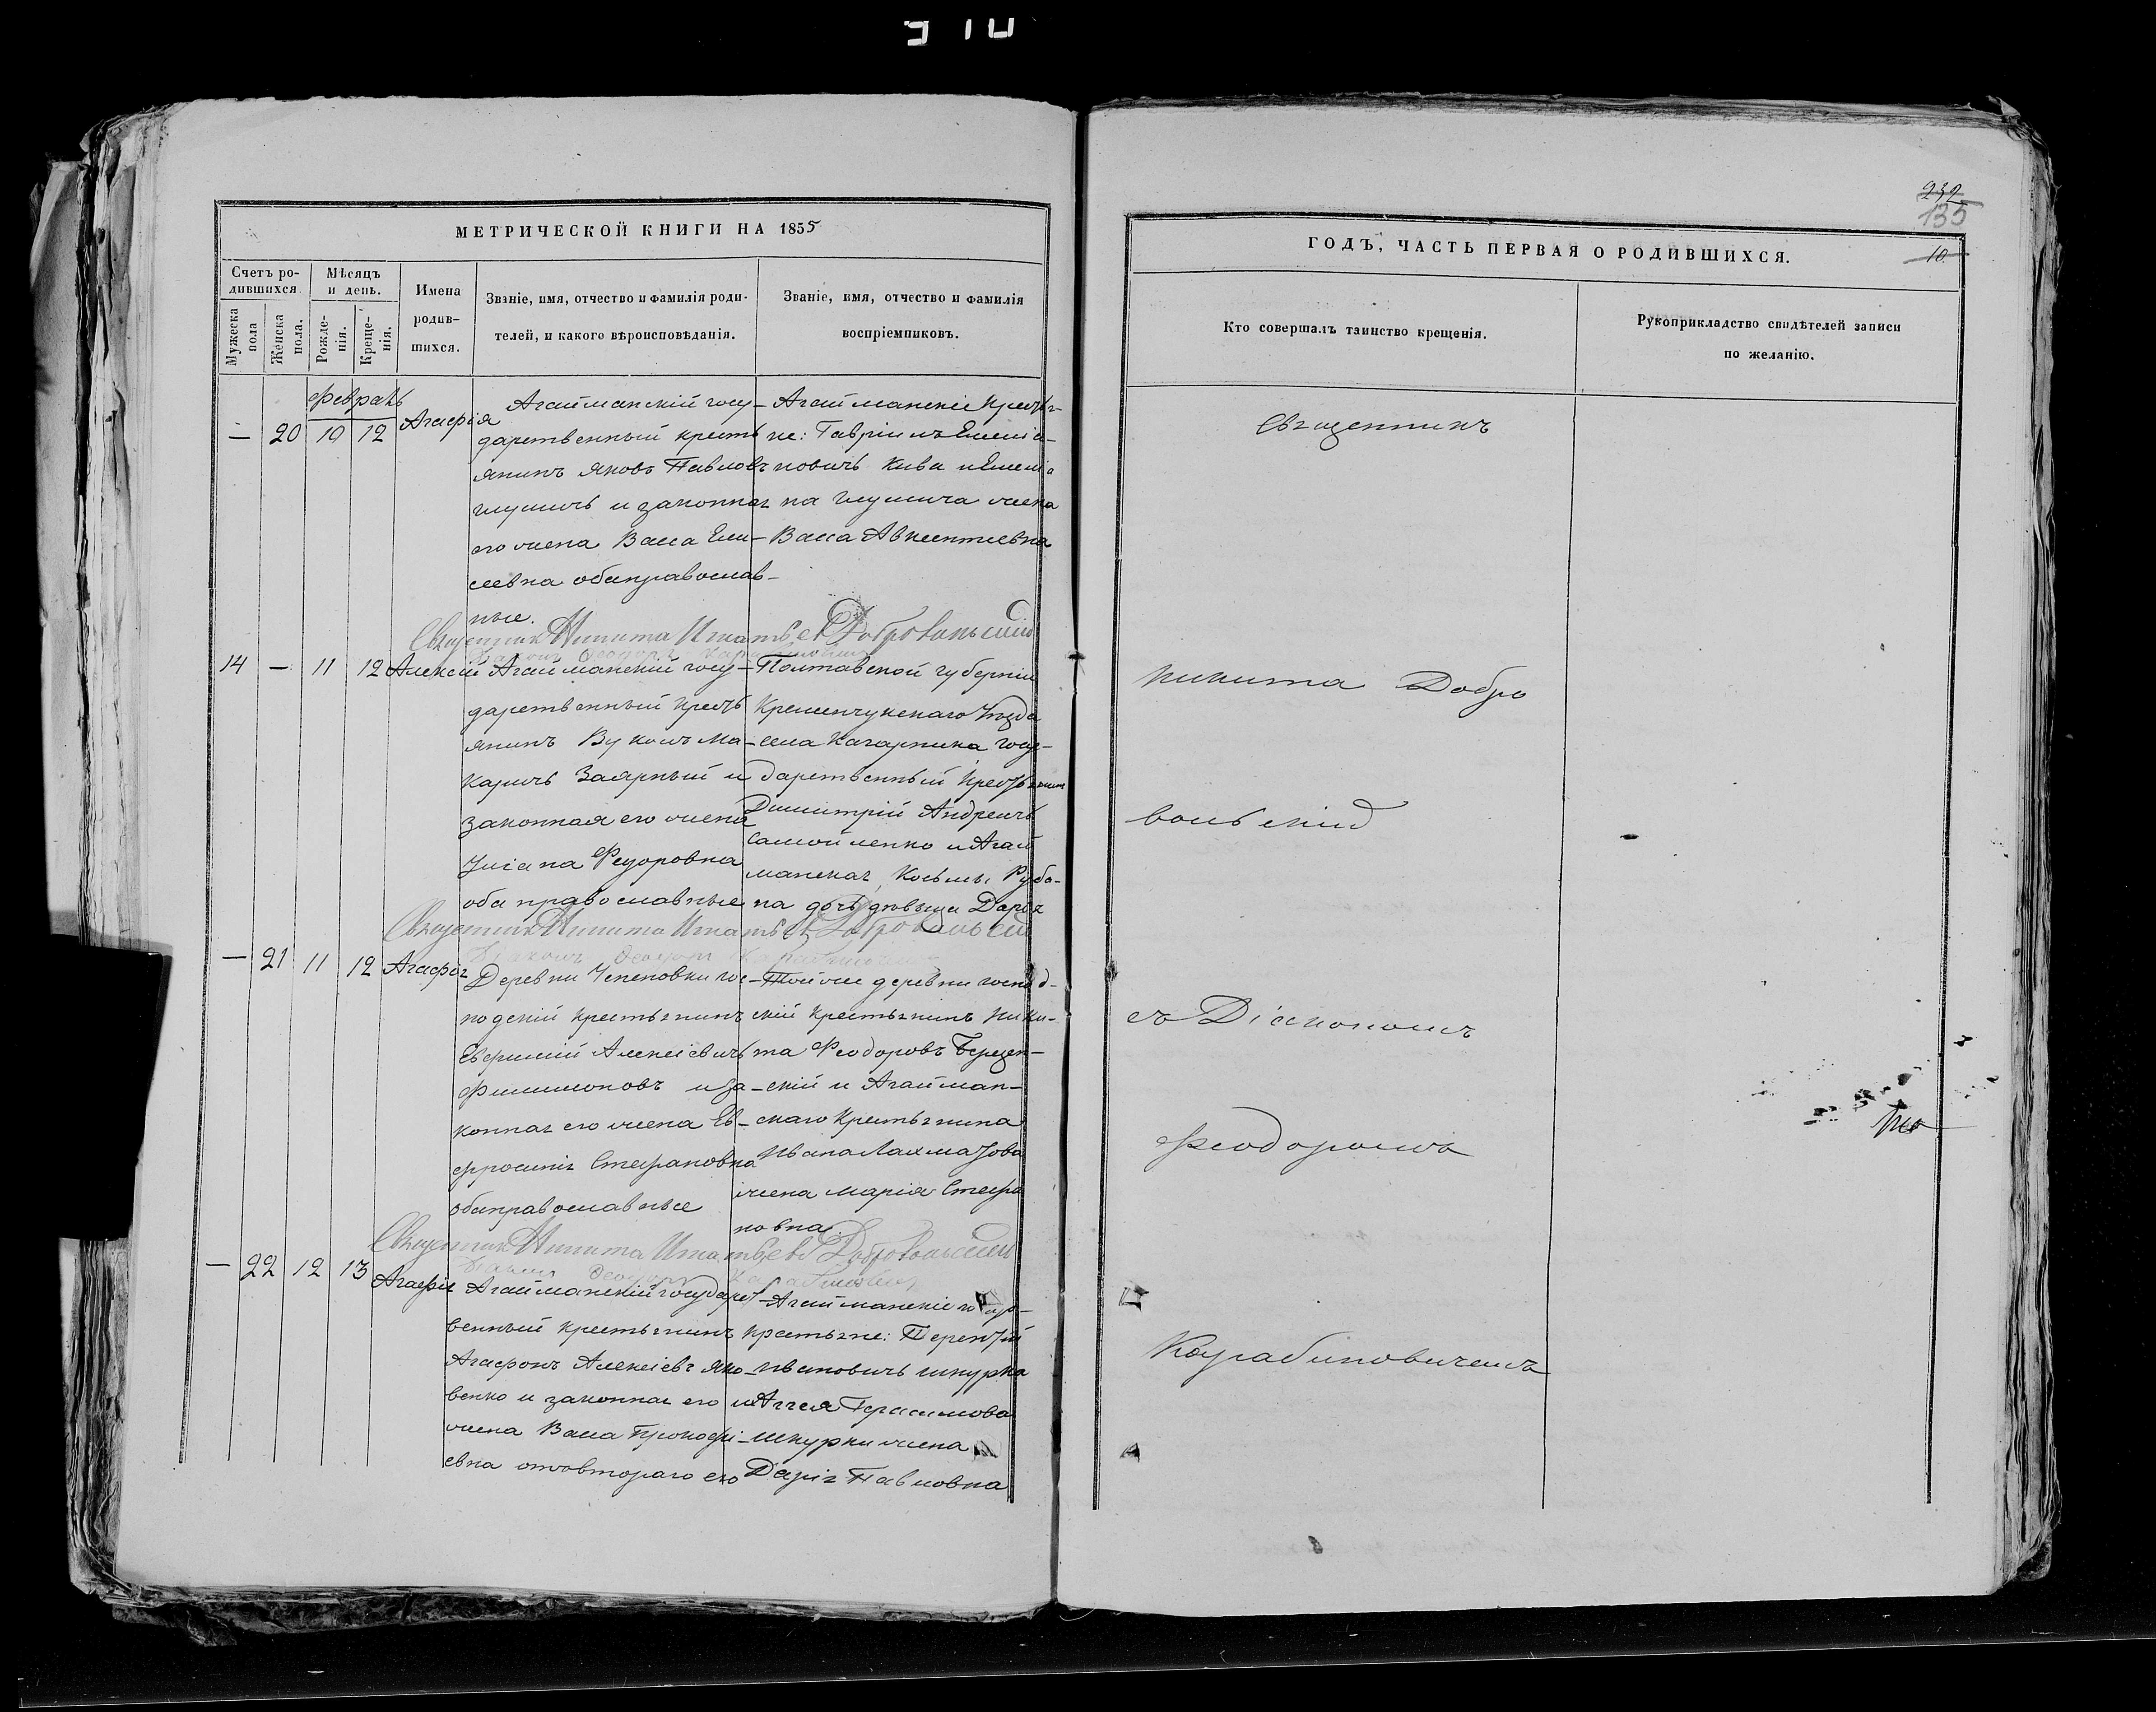 310
МЕТРИЧЕСКОЙ КНИГИ НА 1855
Счетъ ро-
дившихся.
Мѣсяцъ
и день.
Имена
родив-
шихся.
Званіе, имя, отчество и фамилія роди-
телей, и какого вѣроисповѣданія.
Званіе, имя, отчество и фамилія
воспріемниковъ.
Мужеска
пола
Женска
пола.
Рожде-
нія.
Креще-
нія.
февраль
— 20 10 12 Агафія
Агайманскій госу-
дарственный кресть
янинъ Яковъ Павловъ
и законная
его жена Васса Ели-
сеевна оба православ-
ные.
Агайманскіе кресть-
не: Гавріилъ Емелiа-
новичъ Кива и Емелiа
на жена
Васса Авксентиевна
Священник Никита Игнатьев Добровольский
14 — 11 12 Алексій
Агайманскій госу-
дарственный кресть
янинъ Вуколъ Ма-
каричъ Заярный и
законная его жена
Іуліана Федоровна
оба православные
Полтавской губерніи
Кременчукскаго уѣзда
села госу-
дарственный крестьянинъ
Димитрій Андреичъ
Самойленко и Агай
манская, Косьмы Руба-
на дочь дѣвица Дарья
Священник Никита Игнатьев Добровольский
— 21 11 12 Агафія
Деревни гос-
подскій крестьянинъ
Евфимій Алексіевичъ
Филимоновъ и за-
конная его жена Ев-
фросинія Стефановна
оба православные
Той же деревни господ-
скій крестьянинъ Ники-
та Феодоровъ
скій и Агайман-
скаго крестьянина
Ивана
жена Марія Стефа
новна
Священник Никита Игнатьев Добровольский
— 22 12 13 Агафія
Агайманскій государст
венный крестьянинъ
Агафонъ Алексіевъ Яко-
венко и законная его
жена Васса Прокофі-
евна отъ втораго его
Агайманскіе
крестьяне: Терентій
Ивановичъ Шкурка
и Аггея Герасимова
Шкурки жена
Дарія Павловна
232
135
10
ГОДЪ, ЧАСТЬ ПЕРВАЯ О РОДИВШИХСЯ.
Кто совершалъ таинство крещенія.
Рукоприкладство свидѣтелей записи
по желанію.
Священникъ
Никита Добро
вольскій
съ Діакономъ
Феодоромъ
Карабиновичемъ